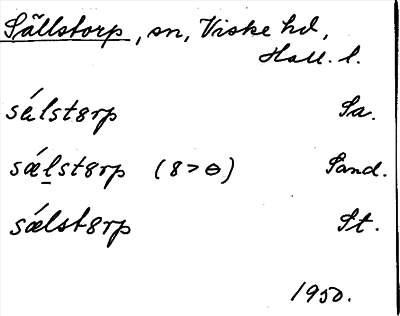 Sällstorp, sn, Viske hd,
Hall. l.
sálstȣrp Sa.
sǽl̠stȣrp (ȣ > ɵ) Sand.
sǽlstȣrp St.
1950.